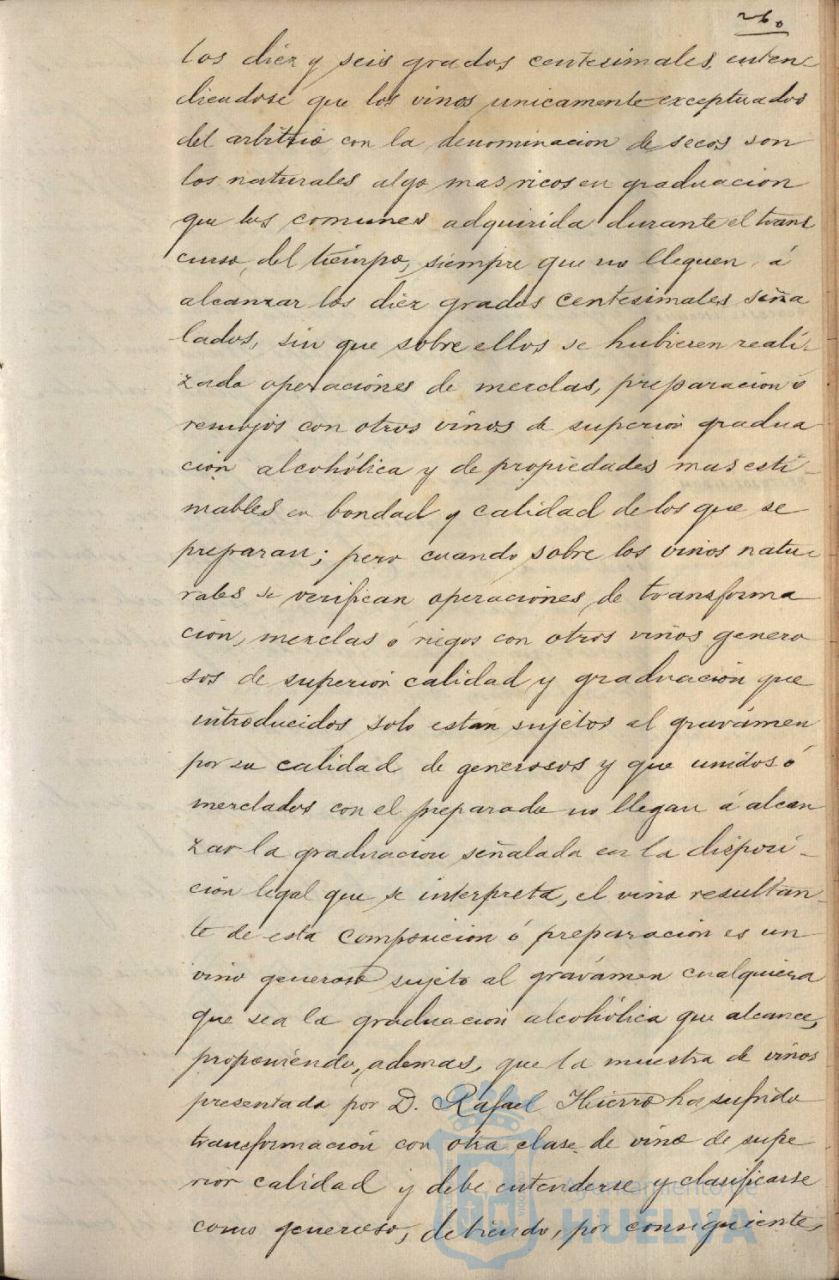 26.
los diéz y seis grados centesimales, enten
diendose que los vinos unicamente exceptuados
del arbitrio con la denominacion de secos son
los naturales algo mas ricos en graduacion
que los comunes adquirida durante el trans
curso del tiempo, siempre que no lleguen á
alcanzar los diéz grados centesimales seña
lados, sin que sobre ellos se hubiesen reali-
zado operaciónes de mezclas, preparacion ó
remojos con otros vinos de superior gradua-
ción alcohólica y de propiedades mas esti-
mables en bondad y calidad de los que se
preparan; pero cuando sobre los vinos natu-
rales se verifican operaciones de transforma
ción, mezclas ó riegos con otros vinos genero
sos de superior calidad y graduación que
introducidos solo están sujetos al gravámen
por su calidad de generosos y que unidos ó
mezclados con el preparado no llegan á alcan
zar la graduacion señalada en la disposi-
ción legal que se interpreta, el vino resultan-
te de esta composicion ó preparación es un
vino generoso sujeto al gravámen cualquiera
que sea la graduación alcohólica que alcance,
proponiendo, ademas, que la muestra de vinos
presentada por D. Rafael Hierro ha sufrido
transformación con otra clase de vino de supe
rior calidad y debe entenderse y clasificarse
como generoso, debiendo, por consiguiente,
Ayuntamiento de
HUELVA